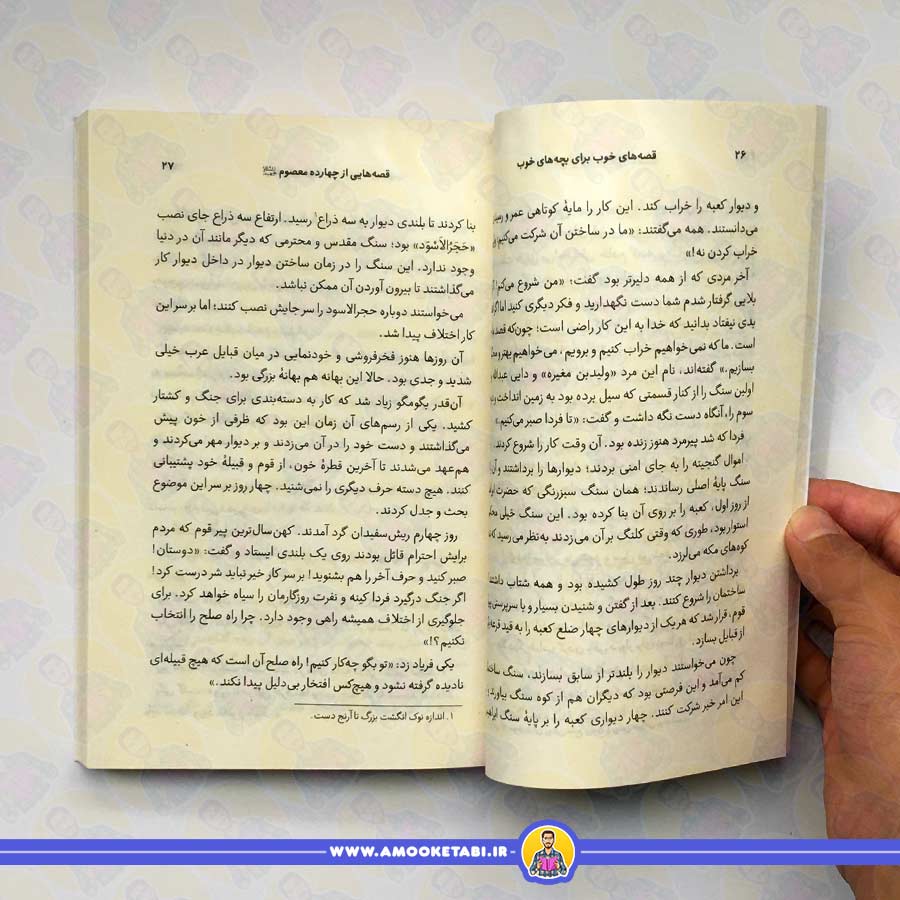 ۲۶ قصه‌های خوب برای بچه‌های خوب
و دیوار کعبه را خراب کند. این کار را مایهٔ کوتاهی عمر و
می‌دانستند. همه می‌گفتند: «ما در ساختن آن شرکت می‌کنیم
خراب کردن نه!»
آخر مردی که از همه دلیرتر بود گفت: «من شروع می‌کنم
بلایی گرفتار شدم شما دست نگهدارید و فکر دیگری کنید اما اگر
بدی نیفتاد بدانید که خدا به این کار راضی است؛ چون‌که قصد
است. ما که نمی‌خواهیم خراب کنیم و برویم، می‌خواهیم بهتر و
بسازیم.» گفته‌اند، نام این مرد «ولیدبن مغیره» و دایی عبدالله
اولین سنگ را از کنار قسمتی که سیل برده بود به زمین انداخت
سوم را، آنگاه دست نگه داشت و گفت: «تا فردا صبر می‌کنیم.»
فردا که شد پیرمرد هنوز زنده بود. آن وقت کار را شروع کردند.
اموال گنجینه را به جای امنی بردند؛ دیوارها را برداشتند و
سنگ پایهٔ اصلی رساندند؛ همان سنگ سبزرنگی که حضرت
از روز اول، کعبه را بر روی آن بنا کرده بود. این سنگ خیلی
استوار بود، طوری که وقتی کلنگ بر آن می‌زدند به‌نظر می‌رسید که
کوه‌های مکه می‌لرزد.
برداشتن دیوار چند روز طول کشیده بود و همه شتاب داشتند
ساختمان را شروع کنند. بعد از گفتن و شنیدن بسیار و با سرپرستی
قوم، قرار شد که هر یک از دیوارهای چهار ضلع کعبه را به قید قرعه
از قبایل بسازد.
چون می‌خواستند دیوار را بلندتر از سابق بسازند، سنگ
کم می‌آمد و این فرصتی بود که دیگران هم از کوه سنگ بیاورند
این امر خیر شرکت کنند. چهار دیواری کعبه را بر پایهٔ سنگ
قصه‌هایی از چهارده معصوم ۲۷
بنا کردند تا بلندی دیوار به سه ذراع۱ رسید. ارتفاع سه ذراع جای نصب
«حَجَرُالاَسْوَد» بود؛ سنگ مقدس و محترمی که دیگر مانند آن در دنیا
وجود ندارد. این سنگ را در زمان ساختن دیوار در داخل دیوار کار
می‌گذاشتند تا بیرون آوردن آن ممکن نباشد.
می‌خواستند دوباره حجرالاسود را سر جایش نصب کنند؛ اما بر سر این
کار اختلاف پیدا شد.
آن روزها هنوز فخرفروشی و خودنمایی در میان قبایل عرب خیلی
شدید و جدی بود. حالا این بهانه هم بهانهٔ بزرگی بود.
آن‌قدر بگومگو زیاد شد که کار به دسته‌بندی برای جنگ و کشتار
کشید. یکی از رسم‌های آن زمان این بود که ظرفی از خون پیش
می‌گذاشتند و دست خود را در آن می‌زدند و بر دیوار مهر می‌کردند و
هم‌عهد می‌شدند تا آخرین قطرهٔ خون، از قوم و قبیلهٔ خود پشتیبانی
کنند. هیچ دسته حرف دیگری را نمی‌شنید. چهار روز بر سر این موضوع
بحث و جدل کردند.
روز چهارم ریش‌سفیدان گرد آمدند. کهن‌سال‌ترین پیر قوم که مردم
برایش احترام قائل بودند روی یک بلندی ایستاد و گفت: «دوستان!
صبر کنید و حرف آخر را هم بشنوید! بر سر کار خیر نباید شر درست کرد!
اگر جنگ درگیرد فردا کینه و نفرت روزگارمان را سیاه خواهد کرد. برای
جلوگیری از اختلاف همیشه راهی وجود دارد. چرا راه صلح را انتخاب
نکنیم؟!»
یکی فریاد زد: «تو بگو چه‌کار کنیم! راه صلح آن است که هیچ قبیله‌ای
نادیده گرفته نشود و هیچ‌کس افتخار بی‌دلیل پیدا نکند.»
۱. اندازه نوک انگشت بزرگ تا آرنج دست.
WWW.AMOOKETABI.IR